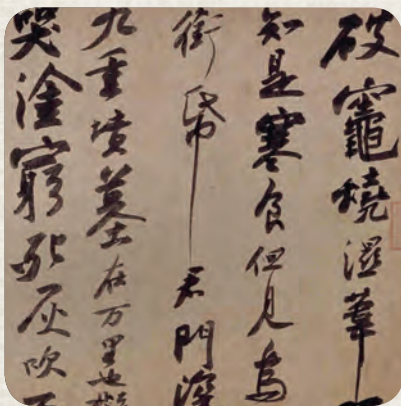 破竈燒濕葦
知是寒食但見烏
銜帋君門深
九重墳墓在万里也擬
哭塗窮死灰吹不